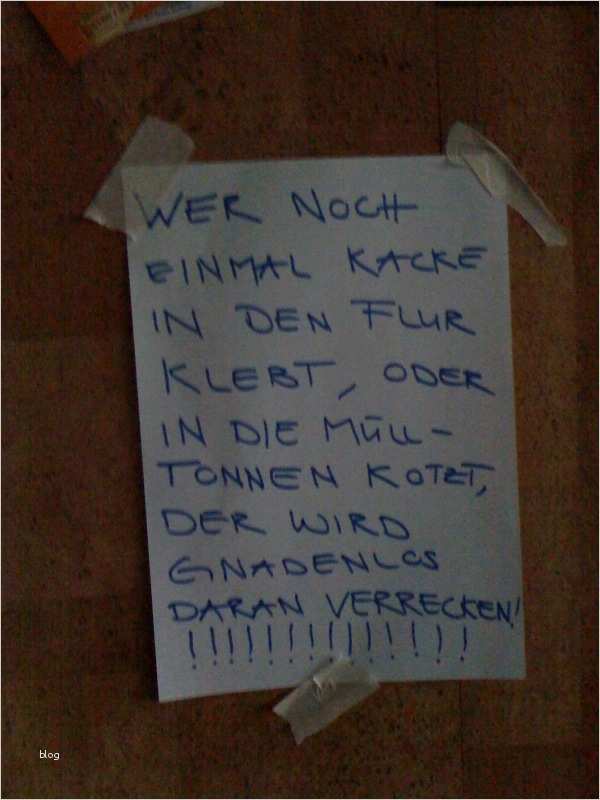 WER NOCH
EINMAL KACKE
IN DEN FLUR
KLEBT, ODER
IN DIE MÜLL-
TONNEN KOTZT,
DER WIRD
GNADENLOS
DARAN VERRECKEN!
!!!!!!!!!!!!!!
blog